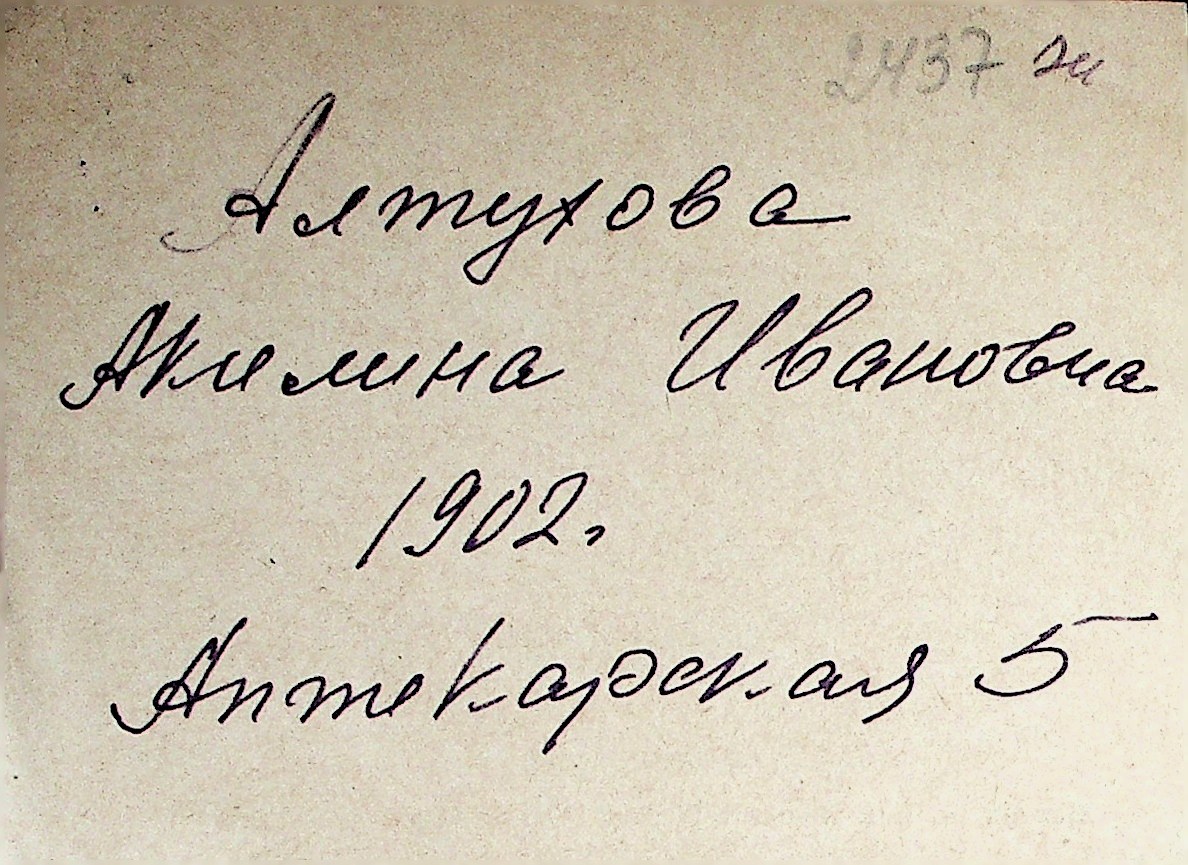 2437
Алтухова
Акилина Ивановна
1902г
Аптекарская 5